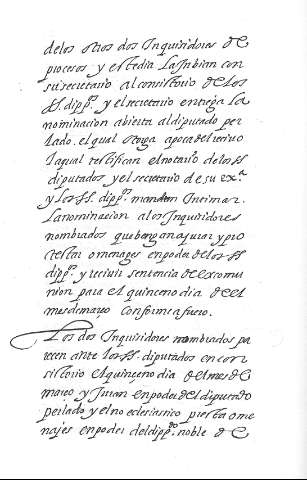 de los otros dos Inquisidores de
procesos y este dia la Inbian con
su secretario al consistorio de los
SS. dippos. y el secretario entrega la
nominacion abierta al diputado per
lado. el qual otorga apoca del recivo
la qual testifican el notario de los SS.
diputados y el secretario de su exa.
y los SS. dippos. mandan intimar.
la nominacion a los Inquisidores
nombrados que bengan a jurar y pro
testar omenages en poder de los SS
dippos. y recivir sentencia de excomu
nion para el quinceno dia de el
mes de mayo conforme a fuero.
Los dos Inquisidores nombrados pa
recen ante los SS. diputados en con
sistorio el quinçeno dia del mes de
mayo y Juran en poder del diputado
perlado y el no eclesiastico presta ome
najes en poder del dippdo. noble de